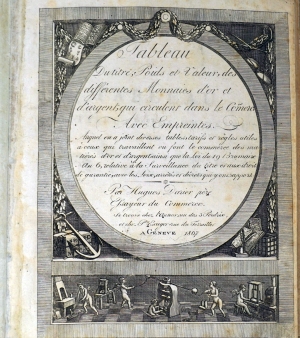 Tableau
Du titre, Poids et Valeur, des
différentes Monnaies d'or et
d'argent, qui circulent dans le Comerce
Avec Empreintes.
Auquel on a joint diverses tables, tarifs et règles utiles
à ceux qui travaillent ou font le commerce des ma
tières d'or et d'argent, ainsi que la loi du 19 Brumaire
An 6, relative à la Surveillance du titre et aux droits
de garantie, avec les Loix, arrêtés et décrets qui y ont rapport
Par Hugues Darier
Essayeur du Commerce.
Se trouve chez
et
A GENÈVE 1807